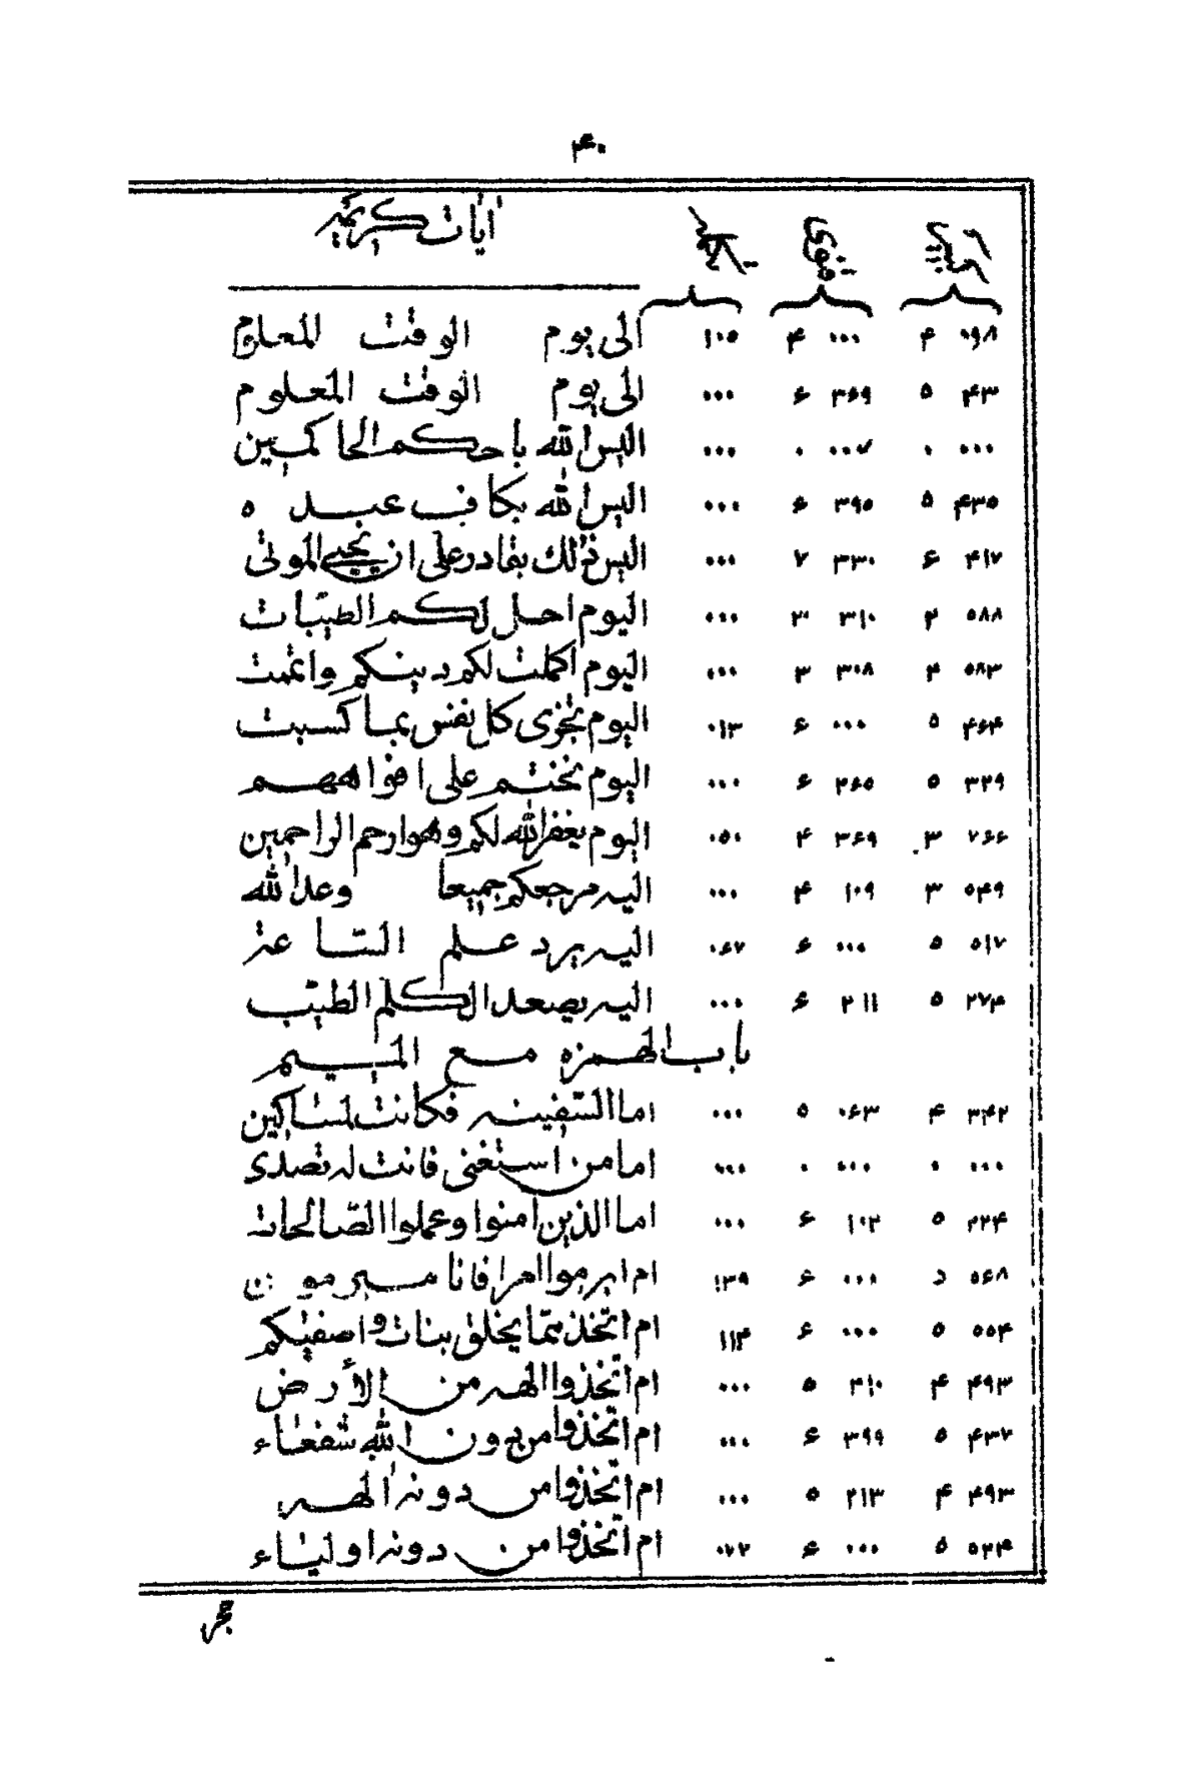 ۴۰
آیات کریمه
۰۹۸ ۴ ۰۰۰ ۴ ۱۰۵ الی یوم الوقت المعلوم
۴۳ ۵ ۳۶۹ ۶ ۰۰۰ الی یوم الوقت المعلوم
۰۰۰ ۰ ۰۰۷ ۰ ۰۰۰ الیس الله باحکم الحاکمین
۴۳۵ ۵ ۳۹۵ ۶ ۰۰۰ الیس الله بکاف عبده
۴۱۷ ۶ ۳۳۰ ۷ ۰۰۰ الیس ذلک بقادر علی ان یحیی الموتی
۵۸۸ ۲ ۳۱۰ ۳ ۰۰۰ الیوم احل لکم الطیبات
۵۸۳ ۲ ۳۰۸ ۳ ۰۰۰ الیوم اکملت لکم دینکم واتممت
۴۶۴ ۵ ۰۰۰ ۶ ۰۱۳ الیوم تجزی کل نفس بما کسبت
۳۲۹ ۵ ۲۶۵ ۶ ۰۰۰ الیوم نختم علی افواههم
۷۶۶ ۳ ۳۶۹ ۴ ۰۵۰ الیوم یغفر الله لکم وهو ارحم الراحمین
۵۴۹ ۳ ۱۰۹ ۴ ۰۰۰ الیه مرجعکم جمیعا وعد الله
۵۱۷ ۵ ۰۰۰ ۶ ۰۶۷ الیه یرد علم الساعة
۲۷۴ ۵ ۲۱۱ ۶ ۰۰۰ الیه یصعد الکلم الطیب
باب الهمزه مع المیم
۳۴۲ ۴ ۰۶۳ ۵ ۰۰۰ اما السفینه فکانت لمساکین
۰۰۰ ۰ ۰۰۰ ۰ ۰۰۰ اما من استغنی فانت له تصدی
۲۲۴ ۵ ۱۰۲ ۶ ۰۰۰ اما الذین امنوا وعملوا الصالحات
۵۶۸ ۵ ۰۰۰ ۶ ۱۳۹ ام ابرموا امرا فانا مبرمون
۵۵۴ ۵ ۰۰۰ ۶ ۱۱۴ ام اتخذ مما یخلق بنات واصفیکم
۴۹۳ ۴ ۲۱۰ ۵ ۰۰۰ ام اتخذوا الهه من الأرض
۴۳۷ ۵ ۳۹۹ ۶ ۰۰۰ ام اتخذوا من دون الله شفعاء
۴۹۳ ۴ ۲۱۳ ۵ ۰۰۰ ام اتخذوا من دونه الهه
۵۲۴ ۵ ۰۰۰ ۶ ۰۷۲ ام اتخذوا من دونه اولیاء